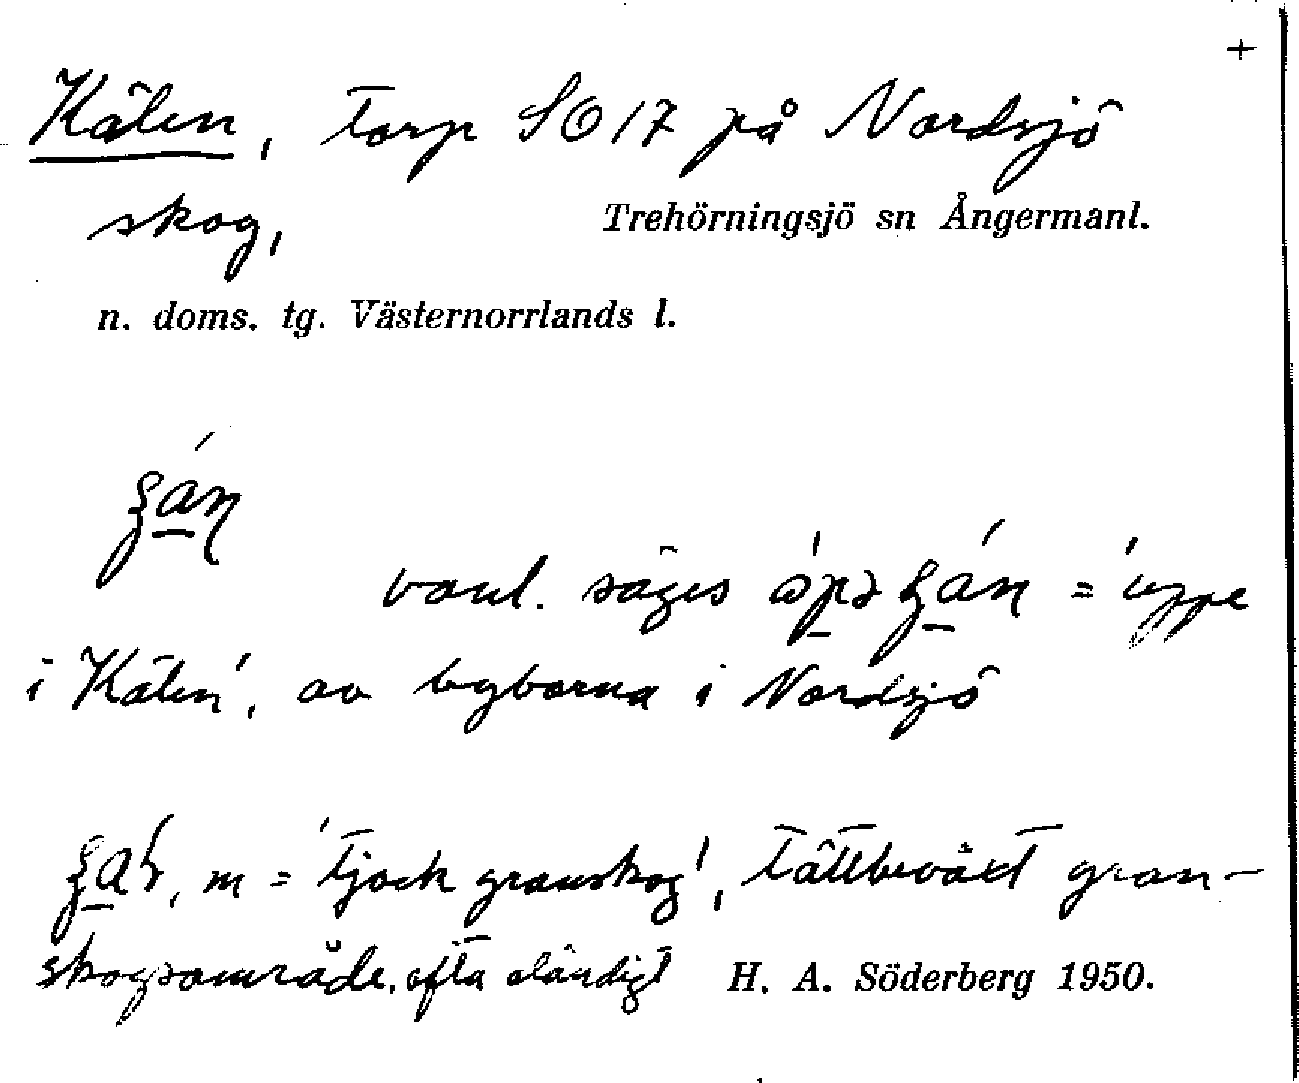 +
Kälen, torp SO 17 på Nordsjö
skog,
Trehörningsjö sn Ångermanl.
n. doms. tg. Västernorrlands l.
vanl. säges = 'uppe
i Kälen', av byborna i Nordsjö
m = 'tjock granskog', tättbeväxt gran-
skogsområde. ofta eländigt
H. A. Söderberg 1950.